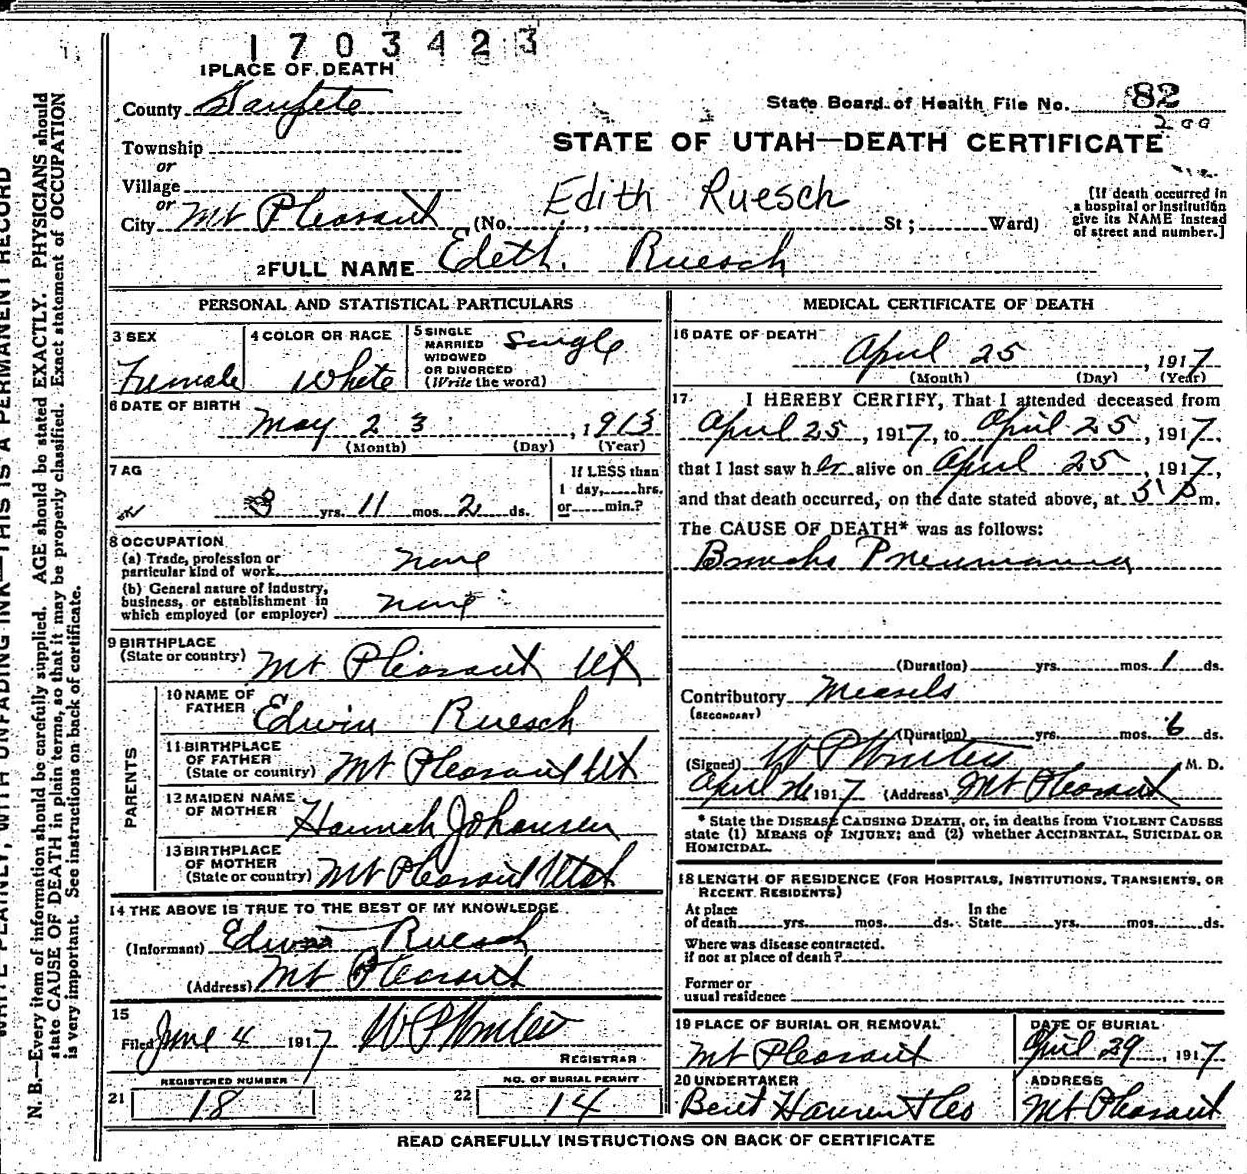 1703423
1 PLACE OF DEATH
County Sanpete
State Board of Health File No. 82
200
Township
or
Village
or
City Mt Pleasant (No. , St ; Ward)
STATE OF UTAH—DEATH CERTIFICATE
Edith Ruesch
[If death occurred in
a hospital or institution
give its NAME instead
of street and number.]
2 FULL NAME Edeth. Ruesch
PERSONAL AND STATISTICAL PARTICULARS
3 SEX
Female
4 COLOR OR RACE
White
5 SINGLE
MARRIED
WIDOWED
OR DIVORCED
(Write the word)
Single
6 DATE OF BIRTH
May 23, 1913
(Month) (Day) (Year)
7 AG
3 yrs. 11 mos. 2 ds.
If LESS than
1 day, hrs.
or min.?
8 OCCUPATION
(a) Trade, profession or
particular kind of work none
(b) General nature of industry,
business, or establishment in
which employed (or employer) none
9 BIRTHPLACE
(State or country) Mt Pleasant Ut
PARENTS
10 NAME OF
FATHER Edwin Ruesch
11 BIRTHPLACE
OF FATHER
(State or country) Mt Pleasant Ut
12 MAIDEN NAME
OF MOTHER Hannah Johansen
13 BIRTHPLACE
OF MOTHER
(State or country) Mt Pleasant Utah
14 THE ABOVE IS TRUE TO THE BEST OF MY KNOWLEDGE
(Informant) Edwin Ruesch
(Address) Mt Pleasant
15
Filed June 4 1917
REGISTRAR
REGISTERED NUMBER
21 18
NO. OF BURIAL PERMIT
22 14
MEDICAL CERTIFICATE OF DEATH
16 DATE OF DEATH
April 25, 1917
(Month) (Day) (Year)
17 I HEREBY CERTIFY, That I attended deceased from
April 25, 1917, to April 25, 1917,
that I last saw her alive on April 25, 1917,
and that death occurred, on the date stated above, at 5 P m.
The CAUSE OF DEATH* was as follows:
Broncho Pneumonia
(Duration) yrs. mos. 1 ds.
Contributory Measels
(SECONDARY)
(Duration) yrs. mos. 6 ds.
(Signed) M. D.
April 26 1917 (Address) Mt Pleasant
* State the DISEASE CAUSING DEATH, or, in deaths from VIOLENT CAUSES
state (1) MEANS OF INJURY; and (2) whether ACCIDENTAL, SUICIDAL OR
HOMICIDAL.
18 LENGTH OF RESIDENCE (FOR HOSPITALS, INSTITUTIONS, TRANSIENTS, OR
RECENT RESIDENTS)
At place
of death yrs. mos. ds.
In the
State yrs. mos. ds.
Where was disease contracted.
if not at place of death?
Former or
usual residence
19 PLACE OF BURIAL OR REMOVAL
Mt Pleasant
DATE OF BURIAL
April 29, 1917
20 UNDERTAKER
ADDRESS
Mt Pleasant
READ CAREFULLY INSTRUCTIONS ON BACK OF CERTIFICATE
WRITE PLAINLY, WITH UNFADING INK—THIS IS A PERMANENT RECORD
N. B.—Every item of information should be carefully supplied. AGE should be stated EXACTLY. PHYSICIANS should
state CAUSE OF DEATH in plain terms, so that it may be properly classified. Exact statement of OCCUPATION
is very important. See instructions on back of certificate.